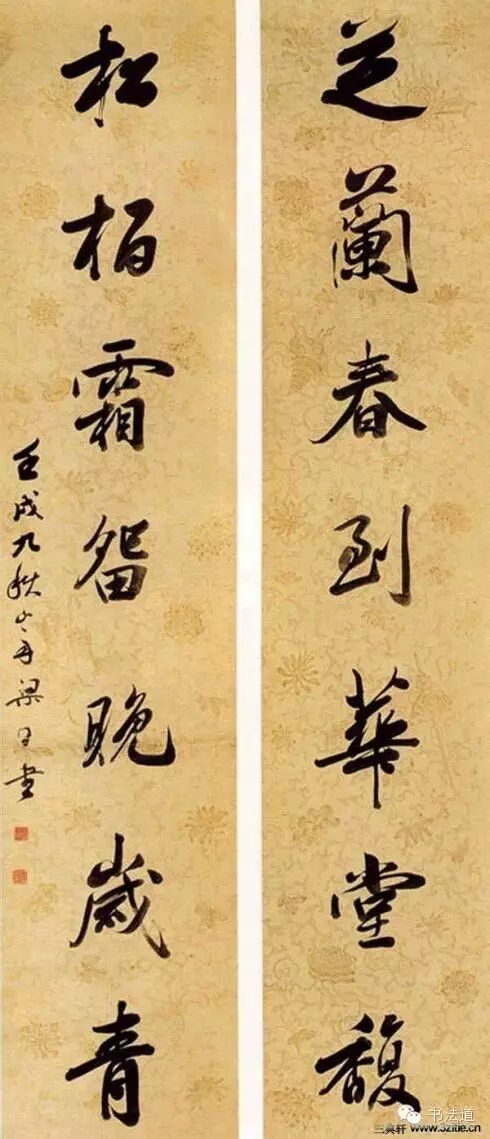 芝蘭春到華堂馥
松柏霜留晚歲青
壬戌九秋 梁 書
书法道
三奥轩 www.32xtie.cn